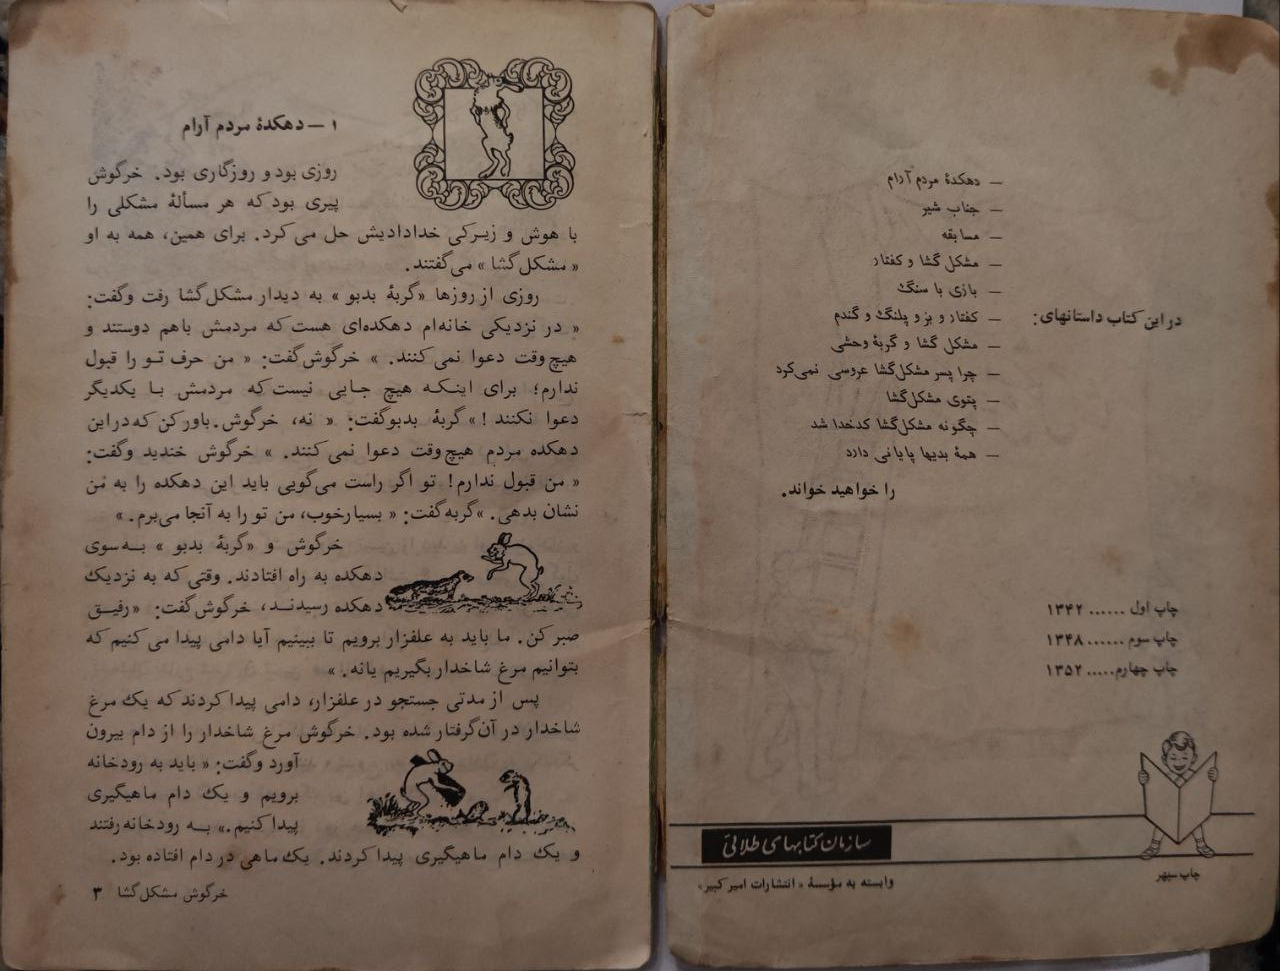 در این کتاب داستانهای:
— دهکدهٔ مردم آرام
— جناب شیر
— مسابقه
— مشکل گشا و کفتار
— بازی با سنگ
— کفتار و بز و پلنگ و گندم
— مشکل گشا و گربهٔ وحشی
— چرا پسر مشکل‌گشا عروسی نمی‌کرد
— پتوی مشکل‌گشا
— چگونه مشکل‌گشا کدخدا شد
— همهٔ بدیها پایانی دارد
را خواهید خواند.
چاپ اول ...... ۱۳۴۲
چاپ سوم ...... ۱۳۴۸
چاپ چهارم..... ۱۳۵۲
سازمان کتابهای طلائی
وابسته به مؤسسهٔ «انتشارات امیرکبیر»
چاپ سپهر
۱ – دهکدهٔ مردم آرام
روزی بود و روزگاری بود. خرگوش
پیری بود که هر مسألهٔ مشکلی را
با هوش و زیرکی خدادادیش حل می‌کرد. برای همین، همه به او
« مشکل‌گشا » می‌گفتند.
روزی از روزها «گربهٔ بدبو » به دیدار مشکل‌گشا رفت وگفت:
« در نزدیکی خانه‌ام دهکده‌ای هست که مردمش باهم دوستند و
هیچ‌وقت دعوا نمی‌کنند. » خرگوش‌گفت: « من حرف تو را قبول
ندارم؛ برای اینکه هیچ جایی نیست‌که مردمش با یکدیگر
دعوا نکنند !» گربهٔ بدبوگفت: « نه، خرگوش. باورکن که دراین
دهکده مردم هیچ‌وقت دعوا نمی‌کنند. » خرگوش خندید وگفت:
« من قبول ندارم! تو اگر راست می‌گویی باید این دهکده را به من
نشان بدهی. »گربه‌گفت: « بسیارخوب، من تو را به آنجا می‌برم. »
خرگوش و «گربهٔ بدبو » به‌سوی
دهکده به راه افتادند. وقتی که به نزدیک
دهکده رسیدند، خرگوش‌گفت: «رفیق
صبر کن. ما باید به علفزار برویم تا ببینیم آیا دامی پیدا می‌کنیم که
بتوانیم مرغ شاخدار بگیریم یانه. »
پس از مدتی جستجو در علفزار، دامی پیداکردند که یک مرغ
شاخدار در آن‌گرفتار شده بود. خرگوش مرغ شاخدار را از دام بیرون
آورد وگفت: « باید به رودخانه
برویم و یک دام ماهیگیری
پیدا کنیم.» به رودخانه رفتند
و یک دام ماهیگیری پیداکردند. یک‌ماهی در دام افتاده بود.
خرگوش مشکل‌گشا ۳